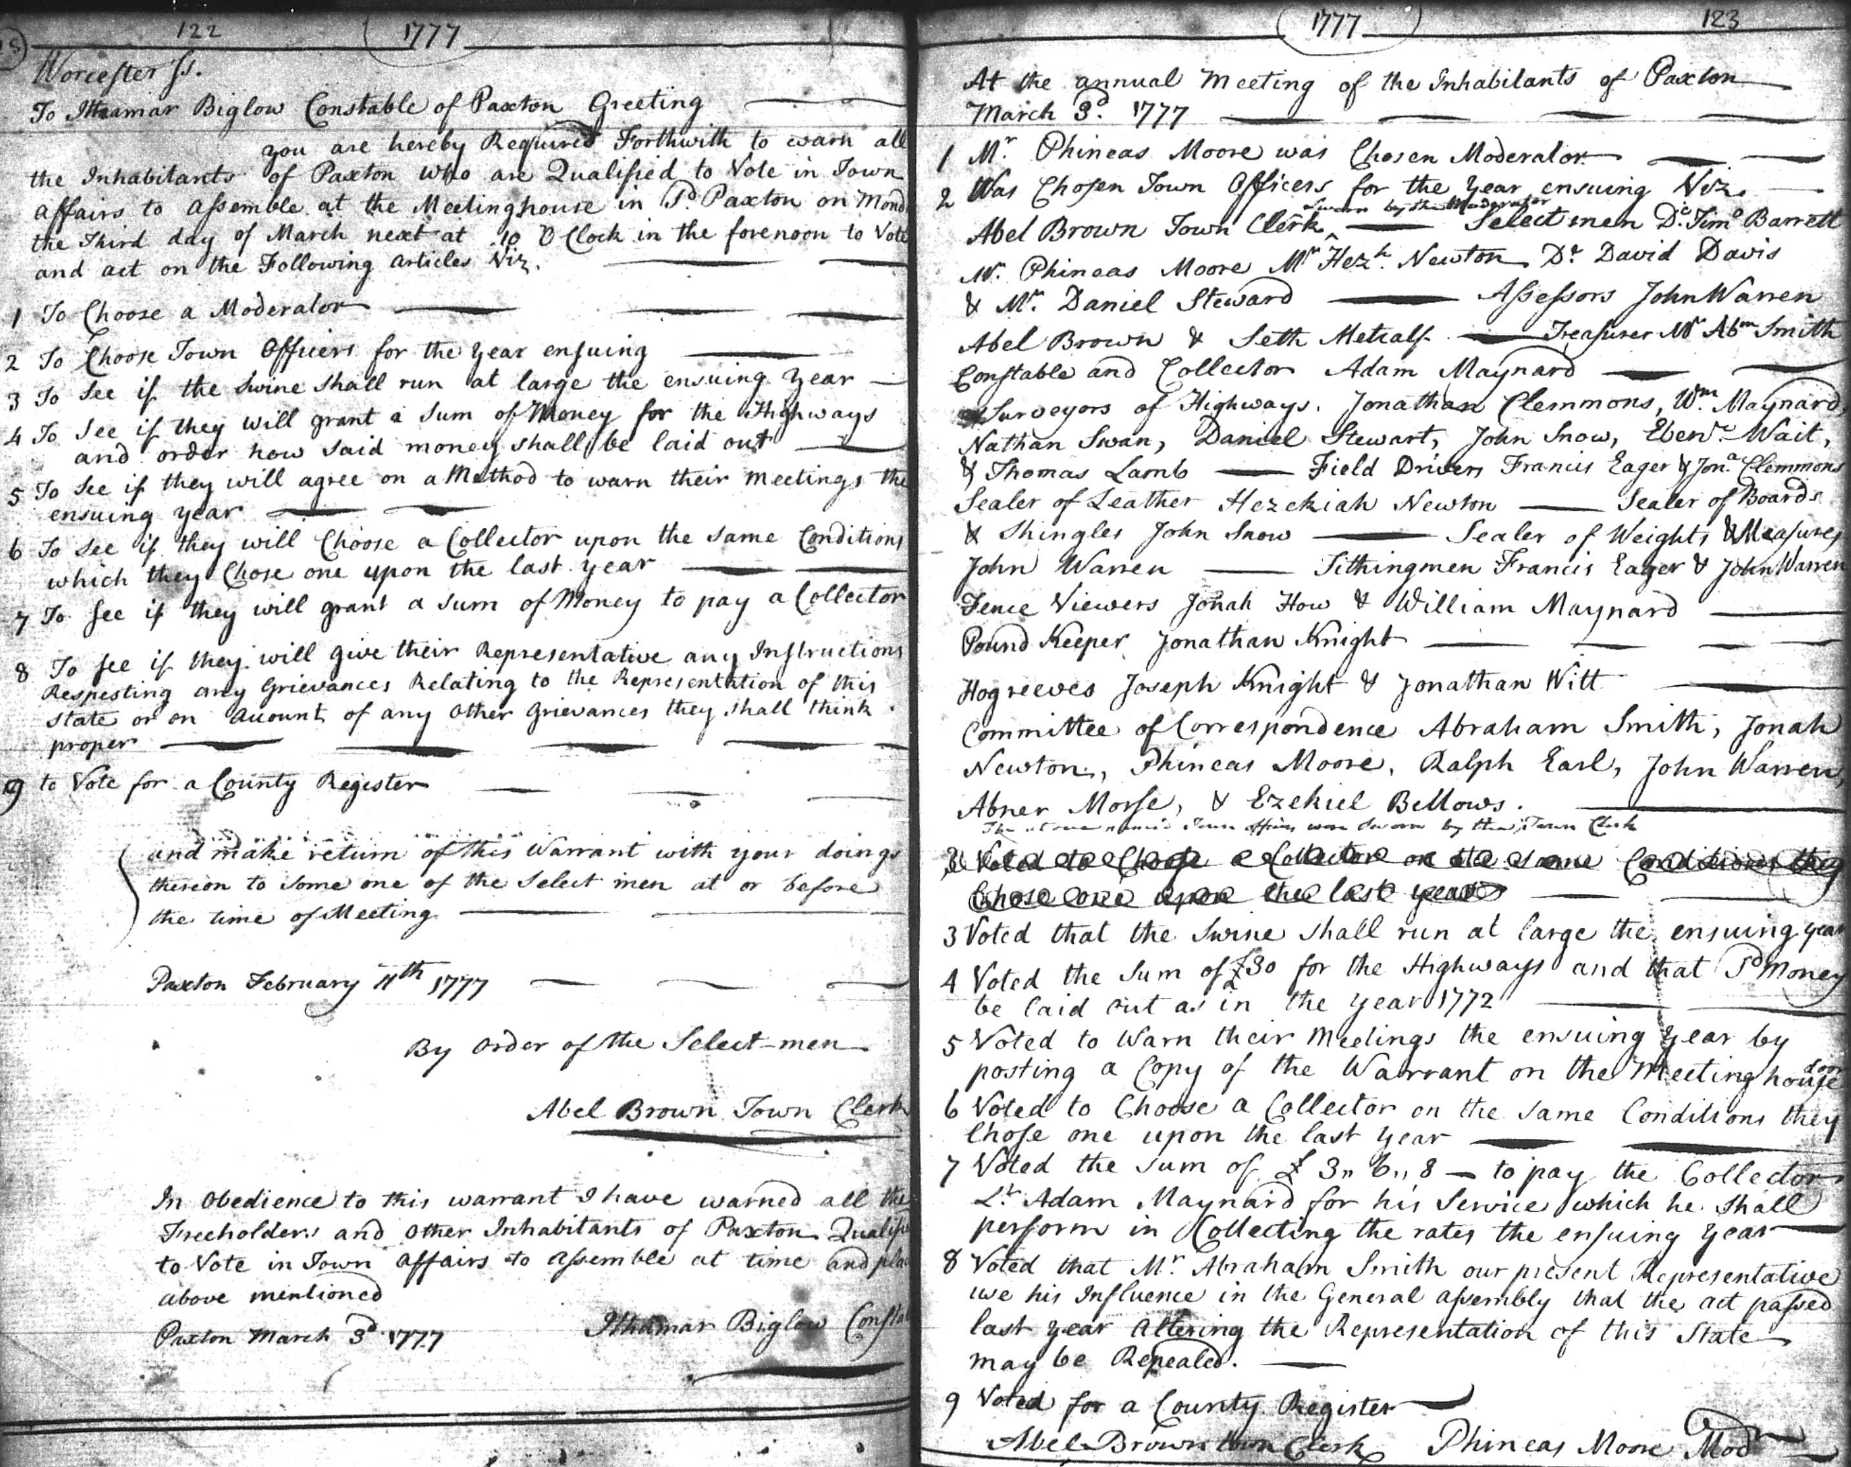 122 1777
Worcester ſs.
To Ithamar Biglow Constable of Paxton Greeting
you are hereby Required Forthwith to warn all
the Inhabitants of Paxton who are Qualified to Vote in Town
affairs to aſsemble at the Meetinghouse in Sd Paxton on Mond
the Third day of March next at 10 O Clock in the forenoon to Vote
and act on the Following articles Viz.
1 To Choose a Moderator
2 To Choose Town Officers for the year enſuing
3 To See if the Swine shall run at large the ensuing year
4 To See if they will grant a Sum of Money for the Highways
and order how said money shall be laid out
5 To See if they will agree on a Method to warn their meetings the
ensuing year
6 To See if they will Choose a Collector upon the same Conditions
which they Chose one upon the last year
7 To See if they will grant a Sum of Money to pay a Collector
8 To See if they will give their Representative any Instructions
Respesting any Grievances Relating to the Representation of this
State or on account of any other Grievances they shall think
proper
9 to Vote for a County Register
and make return of this Warrant with your doings
thereon to some one of the Select men at or before
the time of Meeting
Paxton February 11th 1777
By order of the Select-men
Abel Brown Town Clerk
In Obedience to this warrant I have warned all the
Freeholders and other Inhabitants of Paxton Qualifi
to Vote in Town affairs to aſsemble at time and pla
above mentioned
Paxton March 3d 1777 Ithamar Biglow Conſta
1777 123
At the annual Meeting of the Inhabitants of Paxton
March 3d. 1777
1 Mr Phineas Moore was Chosen Moderator
2 Was Choſen Town Officers for the year ensuing Viz.
sworn by the Moderator
Abel Brown Town Clerk ^ Select men Dc. Timo Barrett
Mr. Phineas Moore Mr Hezh. Newton Dr David Davis
& Mr. Daniel Steward Aſseſsors John Warren
Abel Brown & Seth Metcalf Treaſurer Mr Abm Smith
Conſtable and Collector Adam Maynard
Surveyors of Highways. Jonathan Clemmons, Wm. Maynard,
Nathan Swan, Daniel Stewart, John Snow, Ebenr. Wait,
& Thomas Lamb Field Drivers Francis Eager & Jona Clemmons
Sealer of Leather Hezekiah Newton Sealer of Boards
& Shingles John Snow Sealer of Weights & Meaſures
John Warren Tithingmen Francis Eager & John Warren
Fence Viewers Jonah How & William Maynard
Pound Keeper Jonathan Knight
Hogreeves Joseph Knight & Jonathan Witt
Committee of Correspondence Abraham Smith, Jonah
Newton, Phineas Moore, Ralph Earl, John Warren,
Abner Morſe, & Ezekiel Bellows.
The above named Town officers were Sworn by the Town Clerk
3 Voted to Chooſe a Collector on the same Conditions they
Chose one upon the last year
3 Voted that the Swine shall run at large the ensuing year
4 Voted the Sum of £30 for the Highways and that Sd Money
be laid out as in the year 1772
5 Voted to Warn their Meetings the ensuing year by
posting a Copy of the Warrant on the Meeting house door
6 Voted to Choose a Collector on the same Conditions they
Choſe one upon the last year
7 Voted the Sum of £ 3,, 6,, 8 to pay the Collector
Lt. Adam Maynard for his Service which he shall
perform in Collecting the rates the enſuing year
8 Voted that Mr. Abraham Smith our present Representative
use his Influence in the General aſsembly that the act paſsed
last year Altering the Representation of this State
may be Repealed.
9 Voted for a County Register
Abel Brown town Clerk Phineas Moore Mod